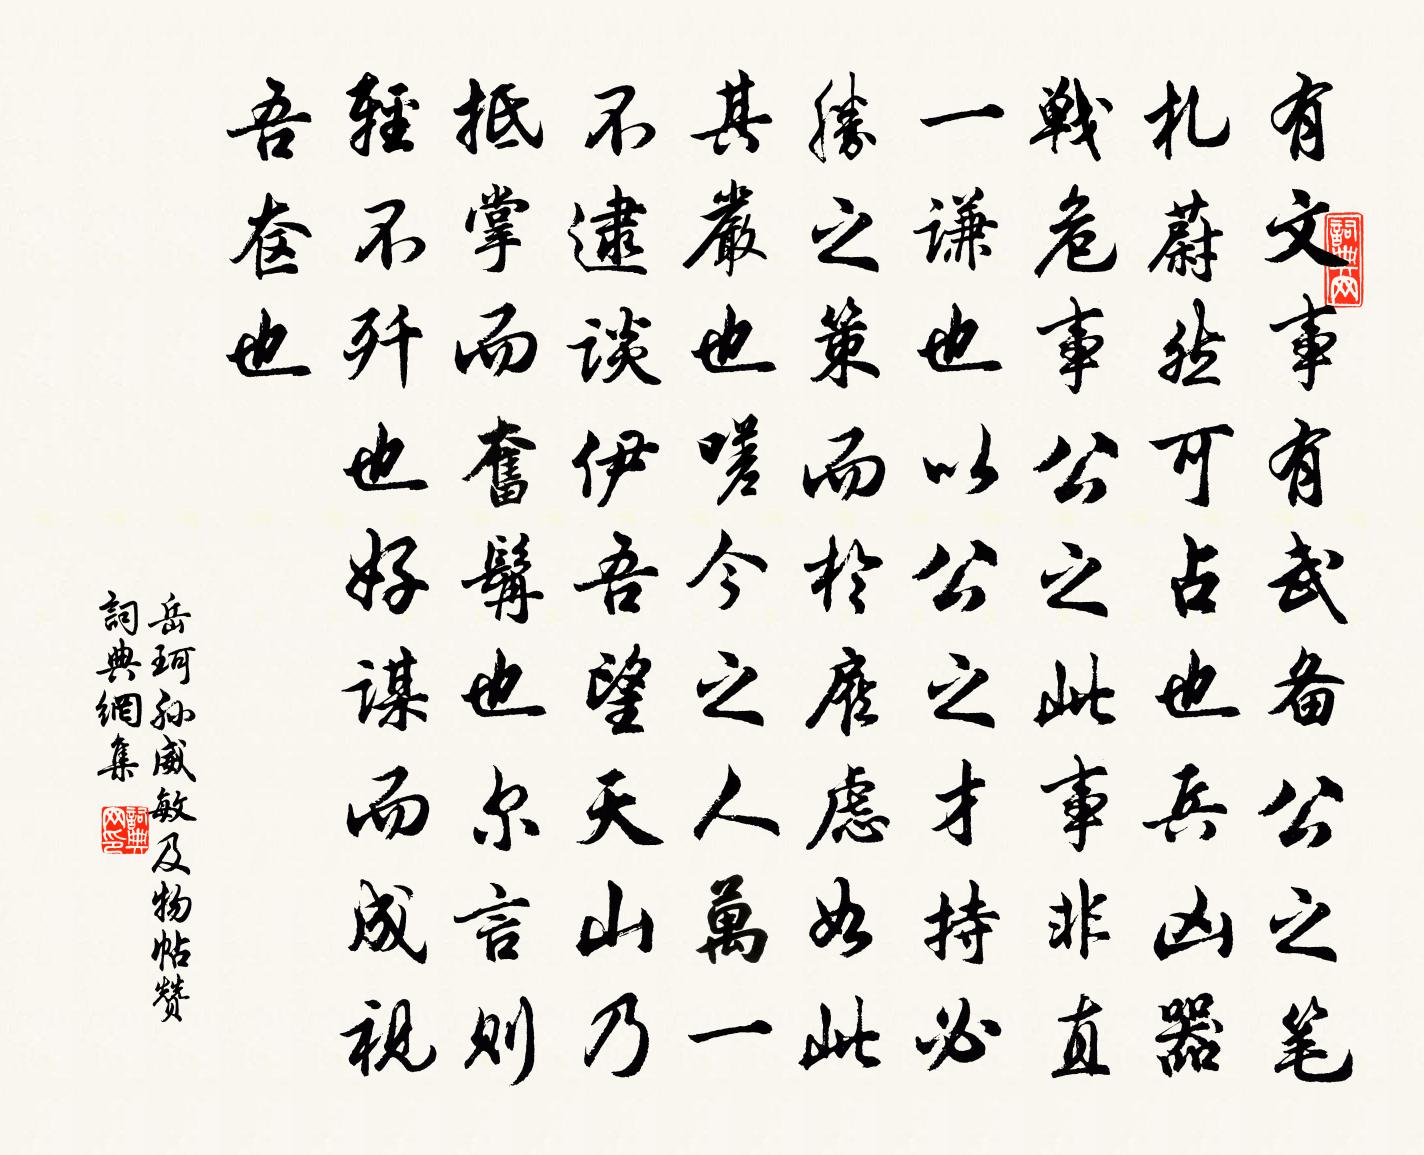 有文事有武备公之笔
札蔚然可占也兵凶器
戦危事公之此事非直
一谦也以公之才持必
勝之策而於慮如此
其嚴也嗟今之人萬一
不逮谈伊吾望天山乃
抵掌而奮髯也尔言则
輕不歼也好谋而成視
吾奁也
岳珂孙威敏及物帖赞
詞典網集
詞典网
詞典网印